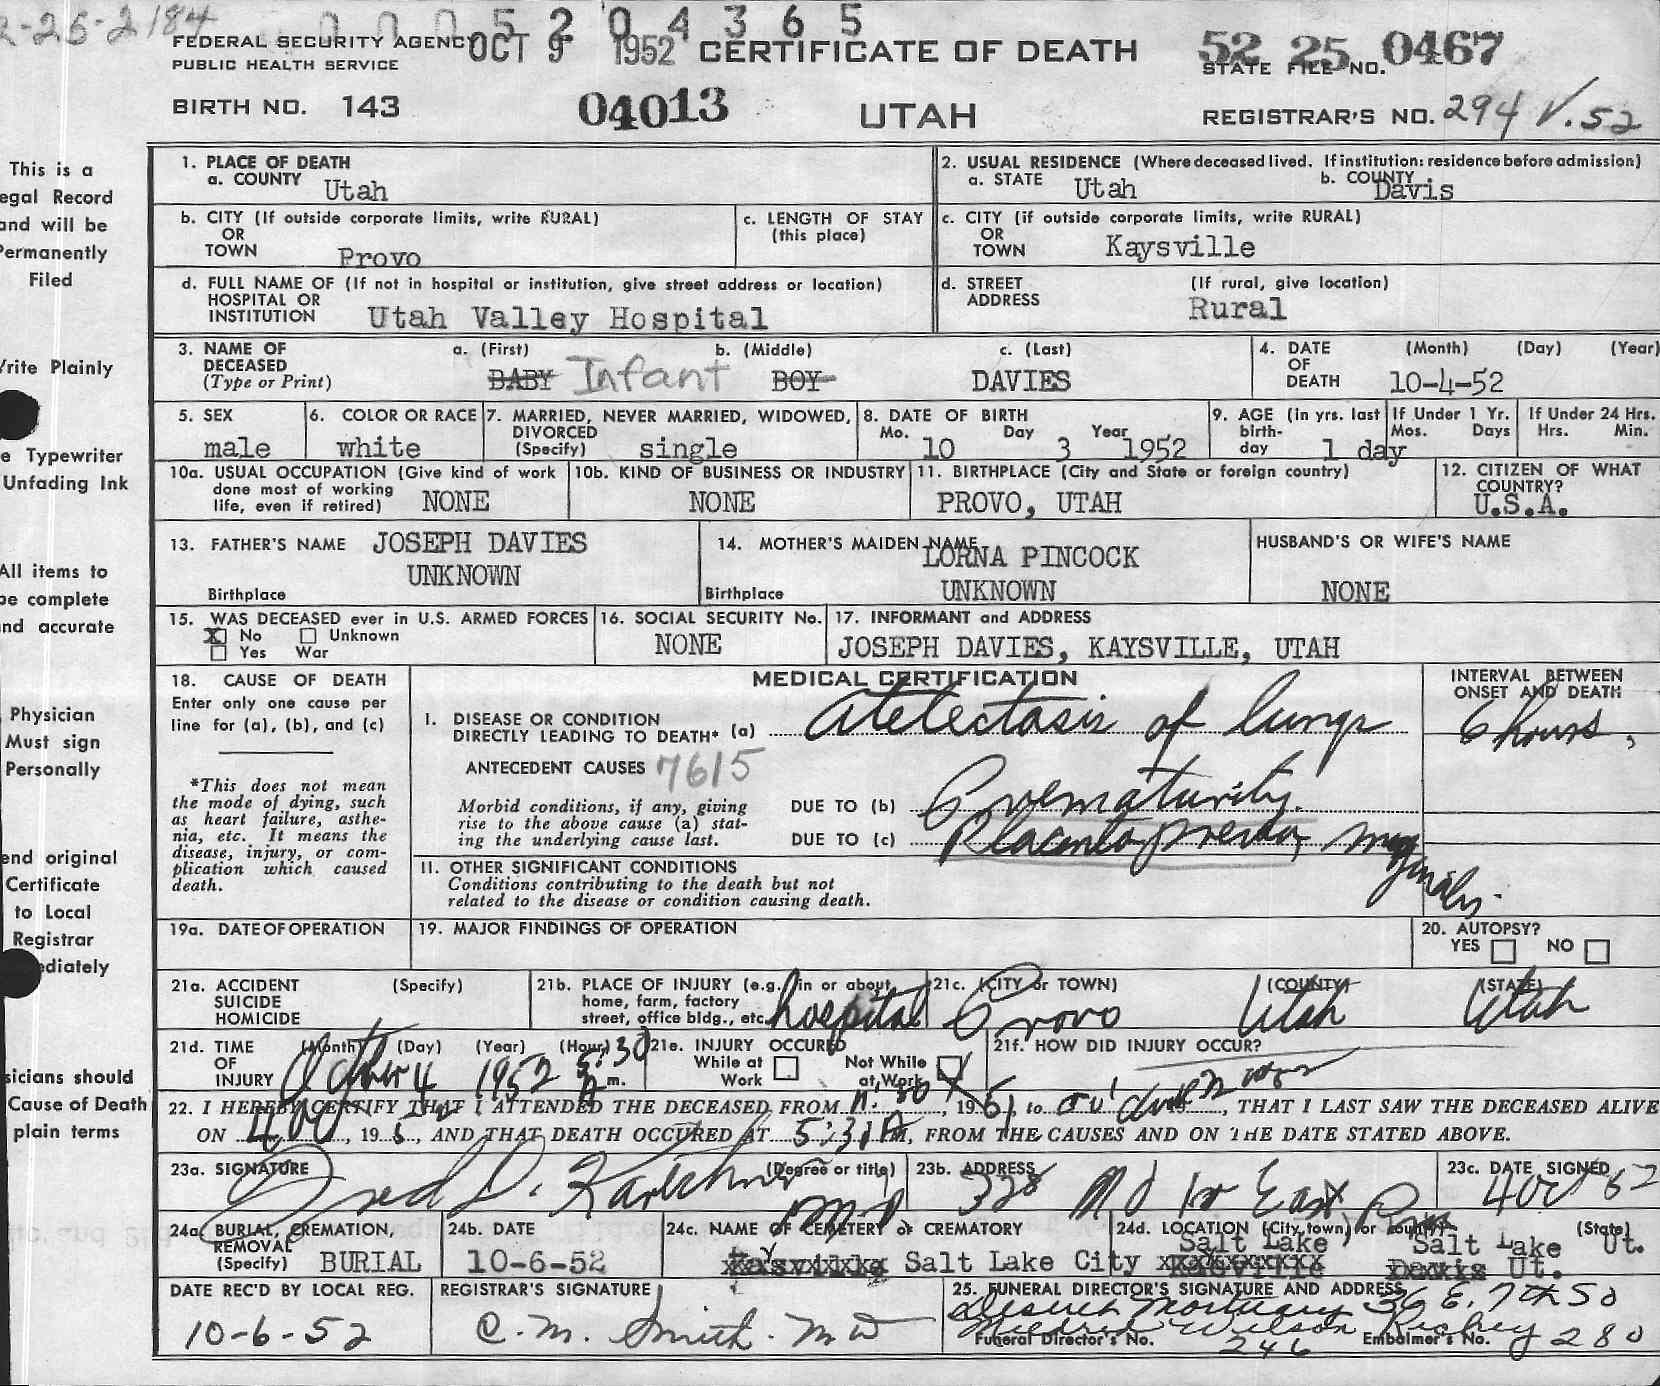 2-25-2184
0005204365
FEDERAL SECURITY AGENCY OCT 9 1952 CERTIFICATE OF DEATH 52 25 0467
PUBLIC HEALTH SERVICE STATE FILE NO.
BIRTH NO. 143 04013 UTAH REGISTRAR'S NO. 294 V.52
This is a
egal Record
and will be
Permanently
Filed
Write Plainly
e Typewriter
Unfading Ink
All items to
be complete
nd accurate
Physician
Must sign
Personally
end original
Certificate
to Local
Registrar
ediately
sicians should
Cause of Death
plain terms
1. PLACE OF DEATH
a. COUNTY Utah
2. USUAL RESIDENCE (Where deceased lived. If institution: residence before admission)
a. STATE Utah b. COUNTY Davis
b. CITY (If outside corporate limits, write RURAL)
OR
TOWN Provo
c. LENGTH OF STAY
(this place)
c. CITY (if outside corporate limits, write RURAL)
OR
TOWN Kaysville
d. FULL NAME OF (If not in hospital or institution, give street address or location)
HOSPITAL OR
INSTITUTION Utah Valley Hospital
d. STREET (If rural, give location)
ADDRESS Rural
3. NAME OF a. (First) b. (Middle) c. (Last)
DECEASED
(Type or Print) BABY Infant BOY DAVIES
4. DATE (Month) (Day) (Year)
OF
DEATH 10-4-52
5. SEX
male
6. COLOR OR RACE
white
7. MARRIED, NEVER MARRIED, WIDOWED,
DIVORCED
(Specify) single
8. DATE OF BIRTH
Mo. 10 Day 3 Year 1952
9. AGE (in yrs. last
birth-
day 1 day
If Under 1 Yr.
Mos. Days
If Under 24 Hrs.
Hrs. Min.
10a. USUAL OCCUPATION (Give kind of work
done most of working
life, even if retired) NONE
10b. KIND OF BUSINESS OR INDUSTRY
NONE
11. BIRTHPLACE (City and State or foreign country)
PROVO, UTAH
12. CITIZEN OF WHAT
COUNTRY?
U.S.A.
13. FATHER'S NAME JOSEPH DAVIES
UNKNOWN
Birthplace
14. MOTHER'S MAIDEN NAME
LORNA PINCOCK
Birthplace UNKNOWN
HUSBAND'S OR WIFE'S NAME
NONE
15. WAS DECEASED ever in U.S. ARMED FORCES
X No Unknown
Yes War
16. SOCIAL SECURITY No.
NONE
17. INFORMANT and ADDRESS
JOSEPH DAVIES, KAYSVILLE, UTAH
18. CAUSE OF DEATH
Enter only one cause per
line for (a), (b), and (c)
*This does not mean
the mode of dying, such
as heart failure, asthe-
nia, etc. It means the
disease, injury, or com-
plication which caused
death.
MEDICAL CERTIFICATION
INTERVAL BETWEEN
ONSET AND DEATH
I. DISEASE OR CONDITION
DIRECTLY LEADING TO DEATH* (a) Atelectasis of lungs 6 hours,
ANTECEDENT CAUSES 7615
Morbid conditions, if any, giving
rise to the above cause (a) stat-
ing the underlying cause last.
DUE TO (b) Prematurity.
DUE TO (c) Placenta previa, marginalis.
II. OTHER SIGNIFICANT CONDITIONS
Conditions contributing to the death but not
related to the disease or condition causing death.
19a. DATE OF OPERATION
19. MAJOR FINDINGS OF OPERATION
20. AUTOPSY?
YES NO
21a. ACCIDENT (Specify)
SUICIDE
HOMICIDE
21b. PLACE OF INJURY (e.g. in or about
home, farm, factory
street, office bldg., etc. hospital
21c. (CITY or TOWN) (COUNTY) (STATE)
Provo Utah Utah
21d. TIME (Month) (Day) (Year) (Hour)
OF
INJURY October 4 1952 5:30 m.
21e. INJURY OCCURED
While at Not While
Work at Work
21f. HOW DID INJURY OCCUR?
22. I HEREBY CERTIFY THAT I ATTENDED THE DECEASED FROM , 19 to , THAT I LAST SAW THE DECEASED ALIVE
ON 4 Oct, 195 , AND THAT DEATH OCCURED AT 5:31 A M, FROM THE CAUSES AND ON THE DATE STATED ABOVE.
23a. SIGNATURE (Degree or title)
Fred D. MD
23b. ADDRESS
328 No 1st East
23c. DATE SIGNED
4 Oct 52
24a. BURIAL, CREMATION,
REMOVAL
(Specify) BURIAL
24b. DATE
10-6-52
24c. NAME OF CEMETERY or CREMATORY
Kaysville Salt Lake City
24d. LOCATION (City, town, or county) (State)
Salt Lake Salt Lake Ut.
Kaysville Davis Ut.
DATE REC'D BY LOCAL REG.
10-6-52
REGISTRAR'S SIGNATURE
C. M. Smith. MD
25. FUNERAL DIRECTOR'S SIGNATURE AND ADDRESS
Deseret Mortuary 36 E. 7th So
Mildred Wilson Richey 280
Funeral Director's No. 246 Embalmer's No.